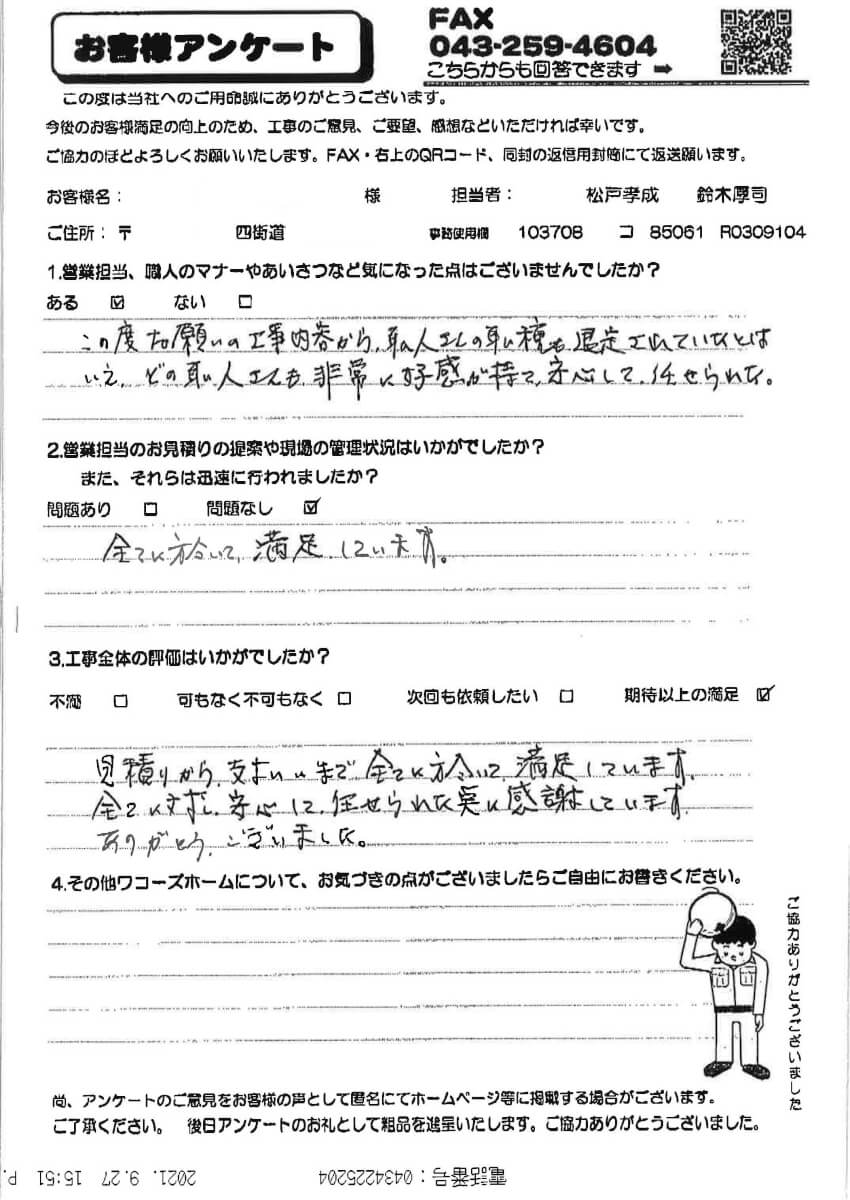 お客様アンケート
FAX
043-259-4604
こちらからも回答できます ➡
この度は当社へのご用命誠にありがとうございます。
今後のお客様満足の向上のため、工事のご意見、ご要望、感想などいただければ幸いです。
ご協力のほどよろしくお願いいたします。FAX・右上のQRコード、同封の返信用封筒にて返送願います。
お客様名： 様 担当者： 松戸孝成 鈴木厚司
ご住所：〒 四街道 事務使用欄 103708 コ 85061 R0309104
1.営業担当、職人のマナーやあいさつなど気になった点はございませんでしたか？
ある ☑ ない □
この度お願いの工事内容から、職人さんの職種も限定されていたとは
いえ、どの職人さんも、非常に好感が持て、安心して、任せられた。
2.営業担当のお見積りの提案や現場の管理状況はいかがでしたか？
また、それらは迅速に行われましたか？
問題あり □ 問題なし ☑
全てに於いて、満足、しています。
3.工事全体の評価はいかがでしたか？
不満 □ 可もなく不可もなく □ 次回も依頼したい □ 期待以上の満足 ☑
見積りから、支払いまで、全てに於いて、満足しています。
全てに対し、安心して、任せられた事に感謝しています。
ありがとう、ございました。
4.その他ワコーズホームについて、お気づきの点がございましたらご自由にお書きください。
ご協力ありがとうございました
尚、アンケートのご意見をお客様の声として匿名にてホームページ等に掲載する場合がございます。
ご了承ください。 後日アンケートのお礼として粗品を進呈いたします。ご協力ありがとうございました。
電話番号：0434225204 2021. 9.27 15:51 P.